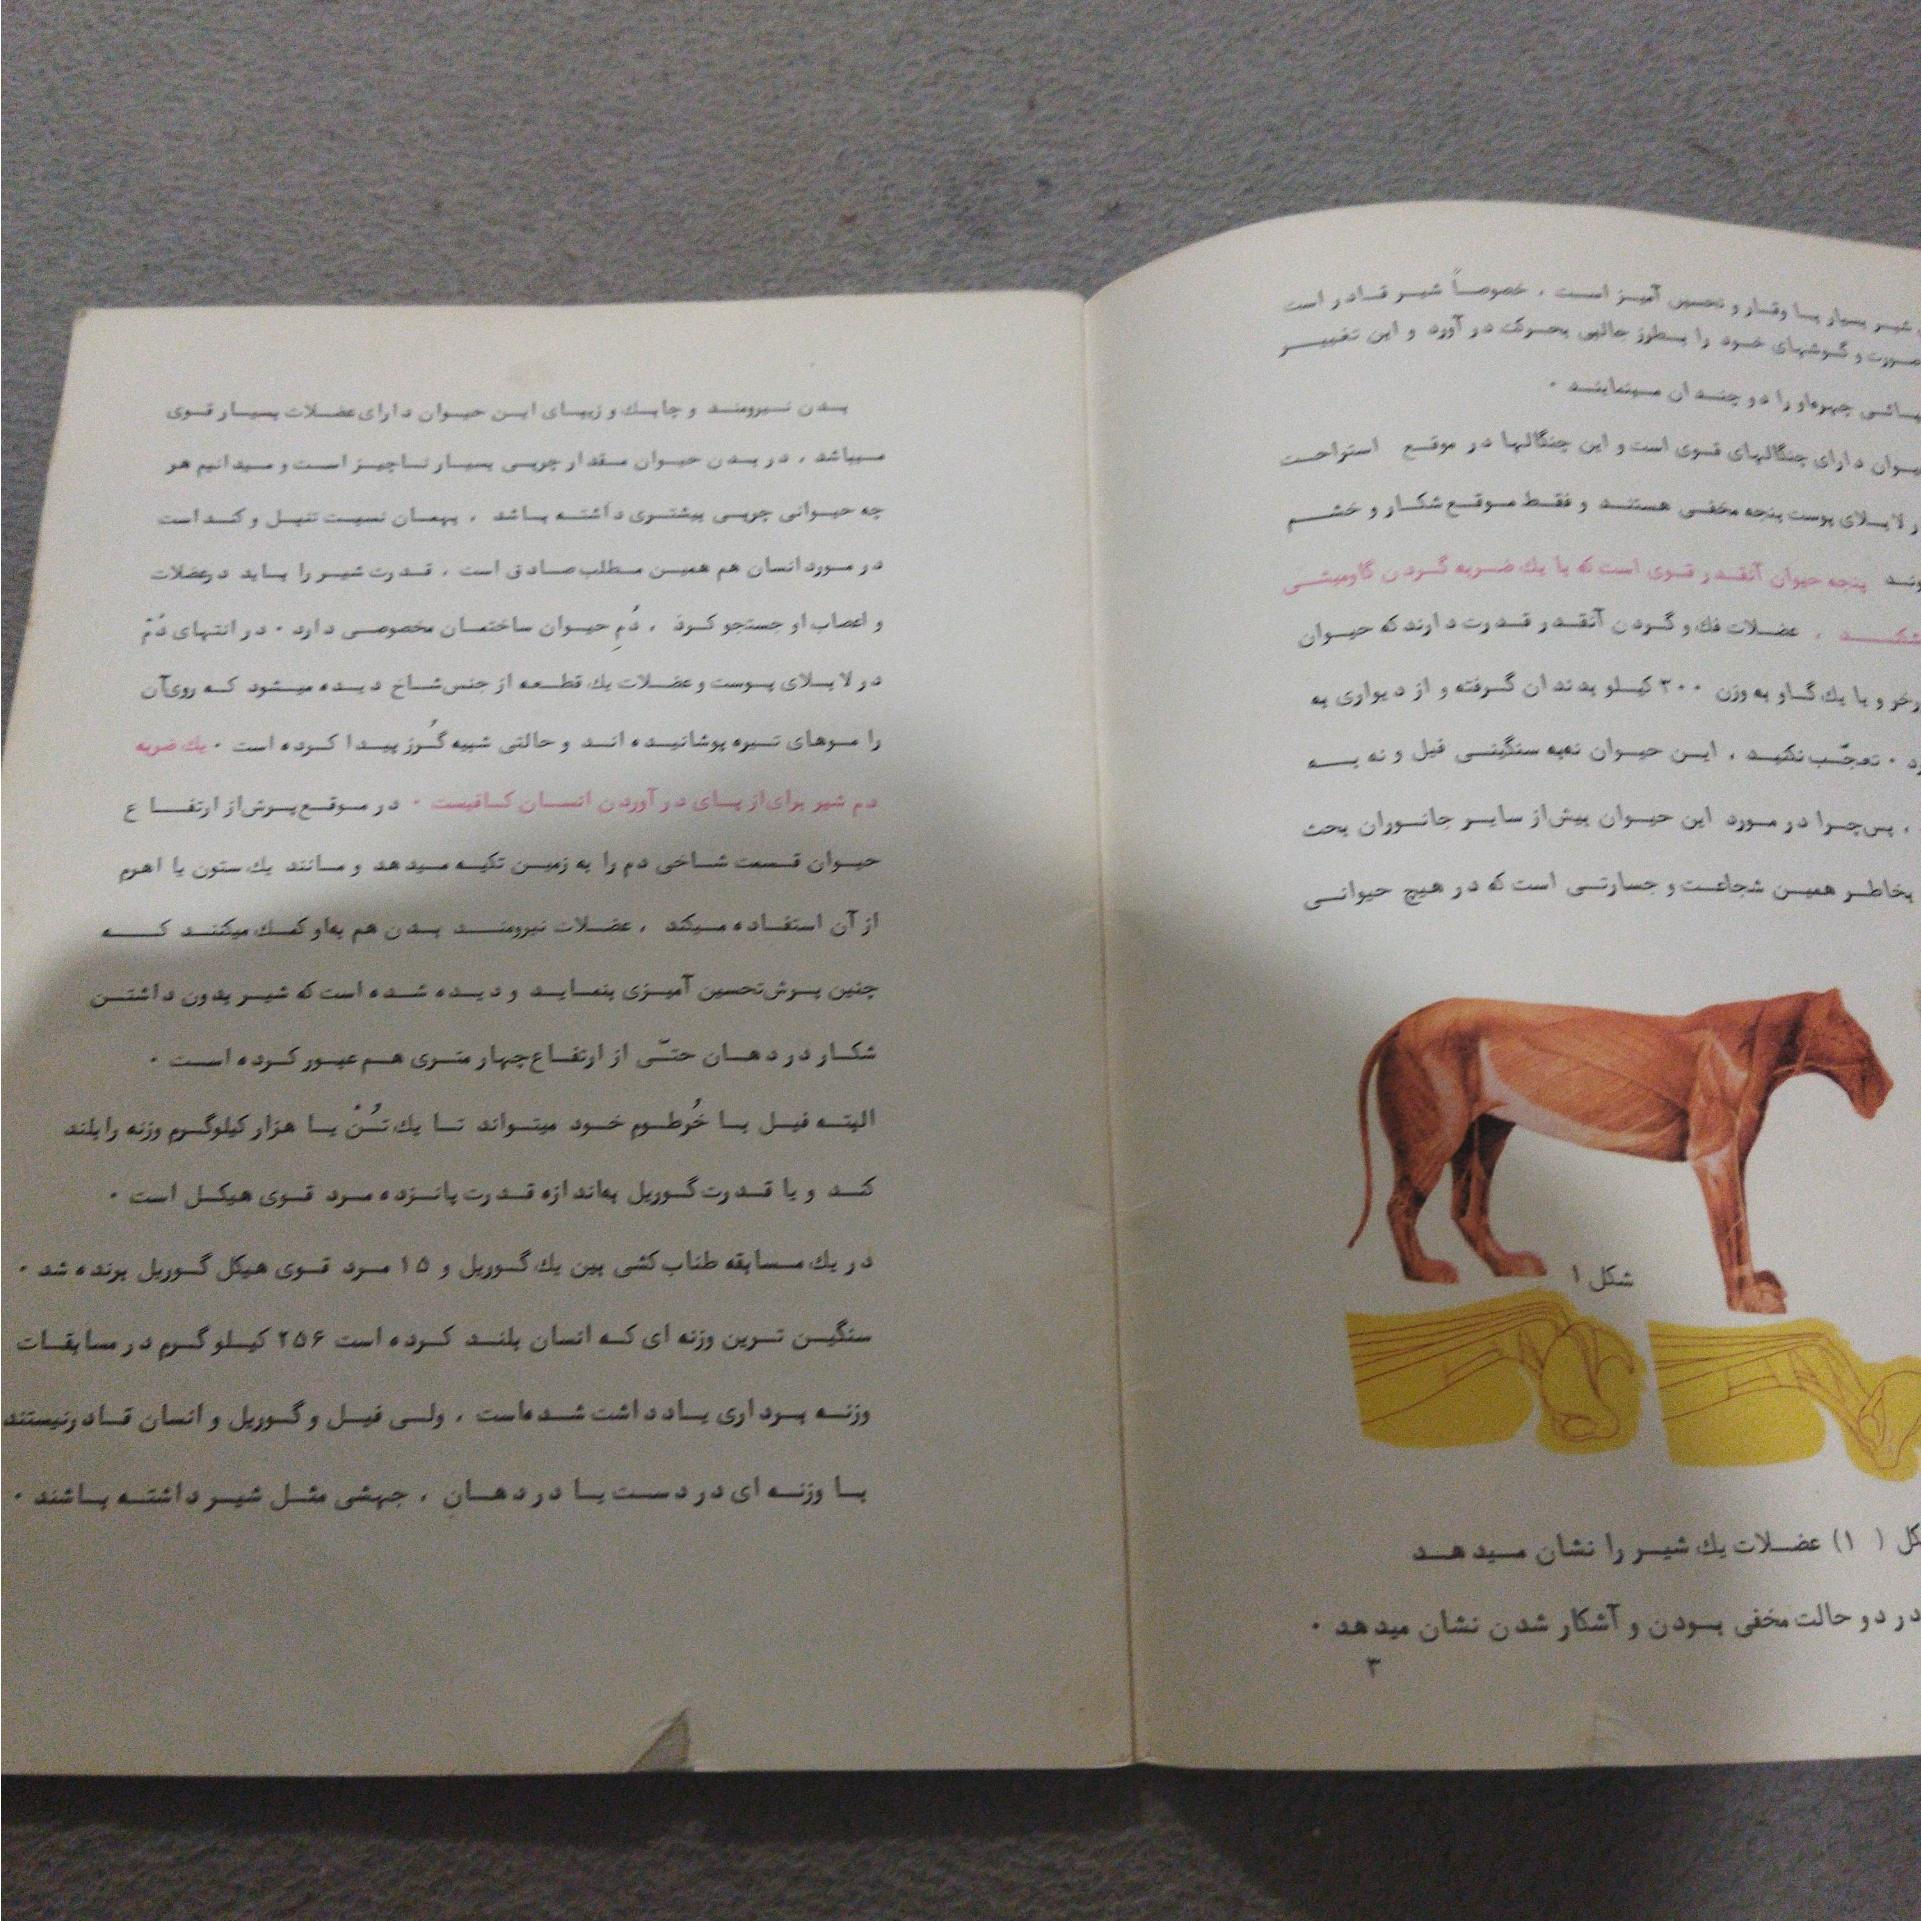 شیر بسیار با وقار و تحسین آمیز است . خصوصاً شیر قادر است
صورت و گوشهای خود را بطرز جالبی بحرکت در آورد و این تغییر
چهره‌او را دو چندان مینمایند .
دارای چنگالهای قوی است و این چنگالها در موقع استراحت
لابلای پوست پنجه مخفی هستند و فقط موقع شکار و خشم
پنجه حیوان آنقدر قوی است که با یك ضربه گردن گاومیشی
. عضلات فك و گردن آنقدر قدرت دارند که حیوان
و یا یك گاو به وزن ۳۰۰ کیلو بدندان گرفته و از دیواری به
. تعجّب نکنید . این حیوان نه‌به سنگینی فیل و نه به
. پس‌چرا در مورد این حیوان بیش‌از سایر جانوران بحث
بخاطر همین شجاعت و جسارتی است که در هیچ حیوانی
شکل ۱
( ۱) عضلات یك شیر را نشان میدهد
در دو حالت مخفی بودن و آشکار شدن نشان میدهد .
۳
بدن نیرومند و چابك و زیبای این حیوان دارای‌عضلات بسیار قوی
میباشد . در بدن حیوان مقدار چربی بسیار ناچیز است و میدانیم هر
چه حیوانی چربی بیشتری داشته باشد . بهمان نسبت تنبل و کند است
در مورد انسان هم همین مطلب صادق است . قدرت شیر را باید درعضلات
و اعصاب او جستجو کرد . دُمِ حیوان ساختمان مخصوصی دارد . در انتهای دُمْ
در لابلای پوست و عضلات یك قطعه از جنس‌شاخ دیده میشود که روی‌آن
را موهای تیره پوشانیده اند و حالتی شبیه گُرز پیدا کرده است . یك ضربه
دم شیر برای‌از پای در آوردن انسان کافیست . در موقع‌پرش‌از ارتفاع
حیوان قسمت شاخی دم را به زمین تکیه میدهد و مانند یك ستون یا اهرم
از آن استفاده میکند . عضلات نیرومند بدن هم به‌او کمك میکنند که
چنین پرش‌تحسین آمیزی بنماید و دیده شده است که شیر بدون داشتن
شکار در دهان حتّی از ارتفاع‌چهار متری هم عبور کرده است .
البته فیل با خُرطوم خود میتواند تا یك تُنْ یا هزار کیلوگرم وزنه را بلند
کند و یا قدرت گوریل به‌اندازه قدرت پانزده مرد قوی هیکل است .
در یك مسابقه طناب کشی بین یك گوریل و ۱۵ مرد قوی هیکل گوریل برنده شد .
سنگین ترین وزنه ای که انسان بلند کرده است ۲۵۶ کیلوگرم در مسابقات
وزنه برداری یادداشت شده‌است . ولی فیل و گوریل و انسان قادرنیستند
با وزنه ای در دست یا در دهانِ . جهشی مثل شیر داشته باشند .